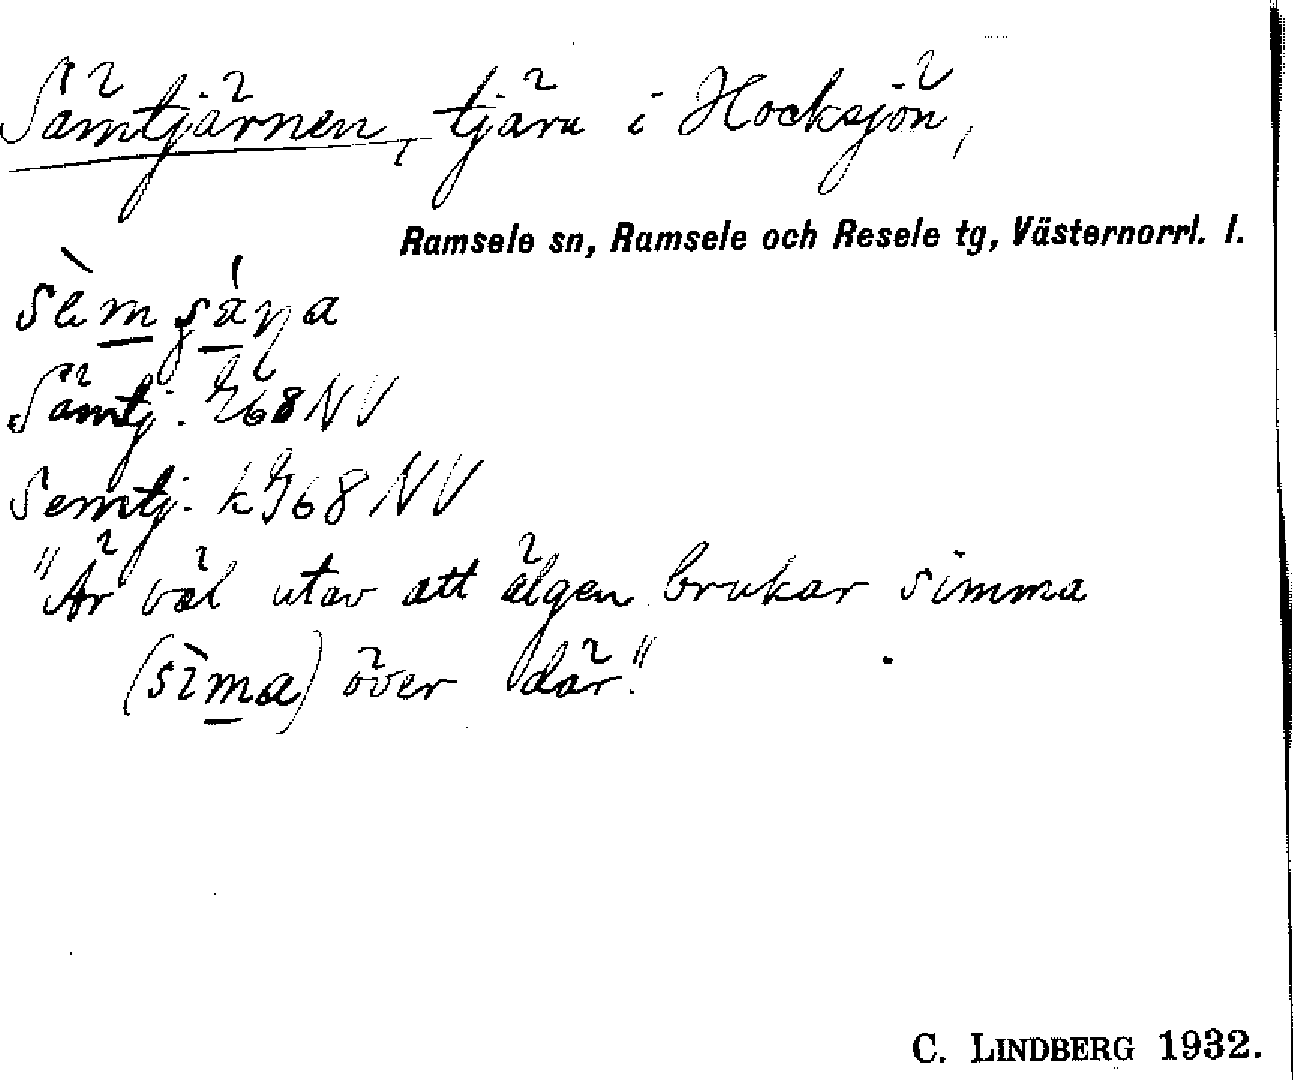 Sämtjärnen, tjärn i Hocksjön,
Ramsele sn, Ramsele och Resele tg, Västernorrl. l.
Sämtj. 768 NV
Semtj. k 768 NV
"Är väl utav att älgen brukar simma
(sìma) över där."
C. LINDBERG 1932.